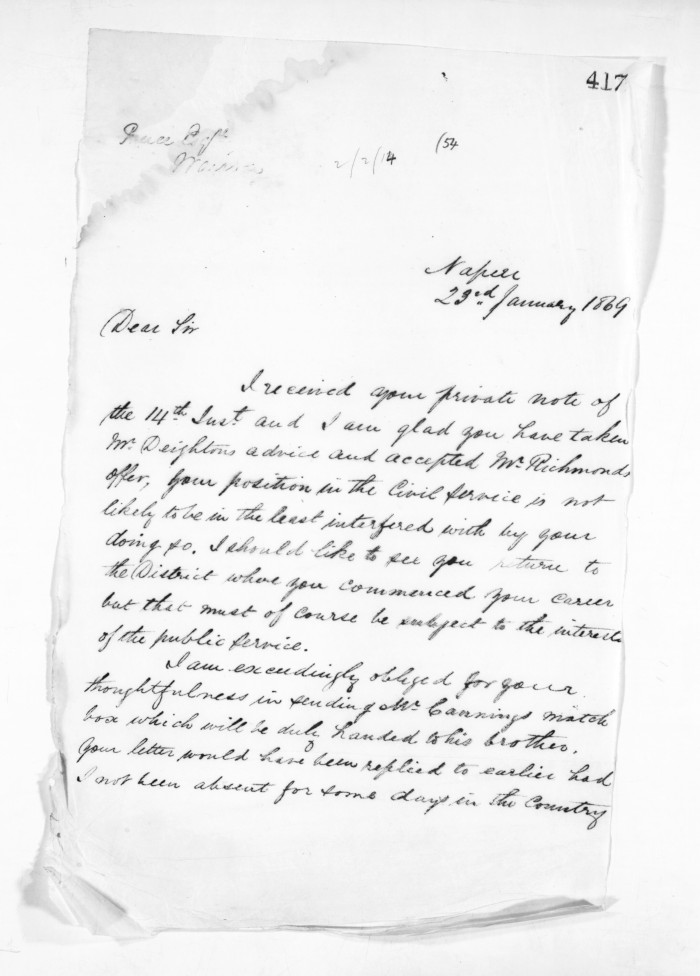 417
2/2/14 (54
Napier
23rd January 1869
Dear Sir
I received your private note of
the 14th Inst. and I am glad you have taken
Mr. Deightons advice and accepted Mr. Richmonds
offer, your position in the Civil Service is not
likely to be in the least interfered with by your
doing so. I should like to see you return to
the District where you commenced your career
but that must of course be subject to the interests
of the public service.
I am exceedingly obliged for your
thoughtfulness in sending Mr Cannings match
box which will be duly handed to his brother.
Your letter would have been replied to earlier had
I not been absent for some days in the Country